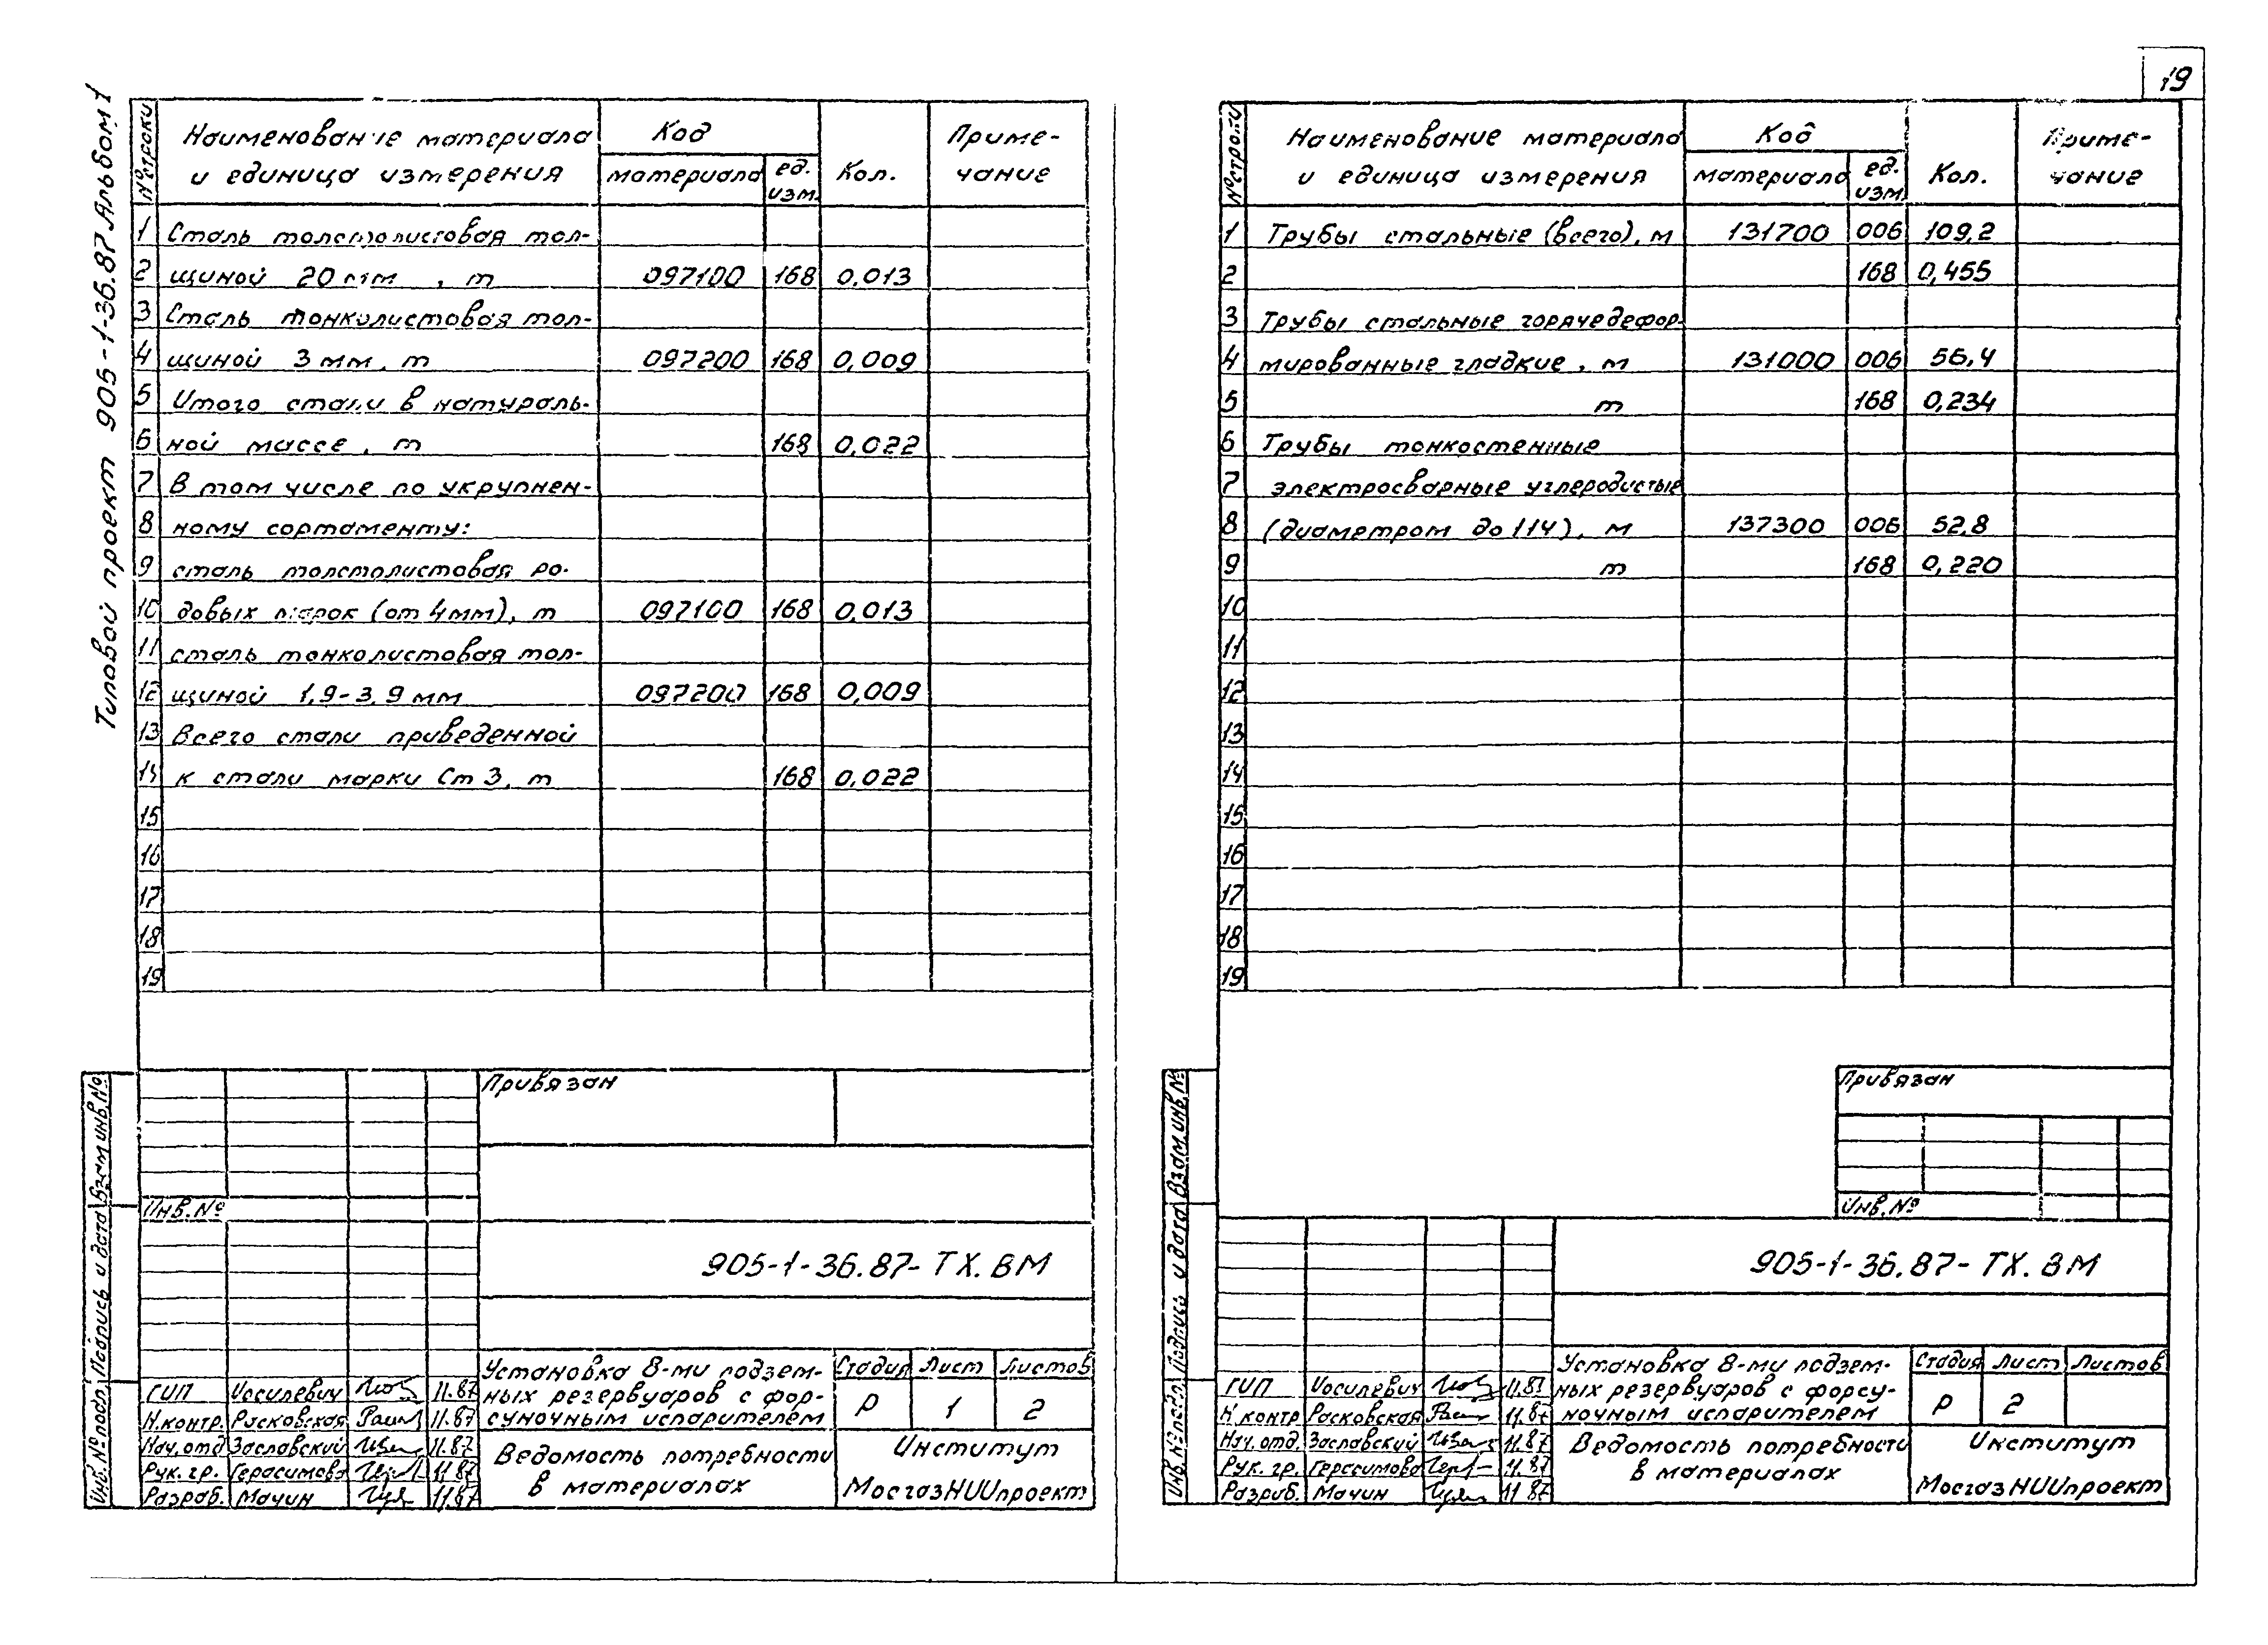 19
Типовой проект 905-1-36.87 Альбом 1
№ строки
Наименование материала и единица измерения
Код
материала
ед. изм.
Кол.
Приме-чание
1 Сталь толстолистовая тол-
2 щиной 20 мм , т 097100 168 0.013
3 Сталь тонколистовая тол-
4 щиной 3 мм, т 097200 168 0,009
5 Итого стали в натураль-
6 ной массе, т 168 0,022
7 В том числе по укрупнен-
8 ному сортаменту:
9 сталь толстолистовая ря-
10 довых марок (от 4мм), т 097100 168 0,013
11 сталь тонколистовая тол-
12 щиной 1,9-3,9 мм 097200 168 0,009
13 Всего стали приведенной
14 к стали марки Ст 3, т 168 0,022
15
16
17
18
19
Привязан
Инв. №
905-1-36.87- ТХ. ВМ
Взам инв. №
Подпись и дата
Инв. № подл.
ГИП Иосилевич 11.87
Н.контр. Расковская 11.87
Нач. отд Заславский 11.87
Рук. гр. Герасимова 11.87
Разраб. Мачин 11.87
Установка 8-ми подзем-
ных резервуаров с фор-
суночным испарителем
Стадия Лист Листов
Р 1 2
Ведомость потребности
в материалах
Институт
МосгазНИИпроект
№ строки
Наименование материала и единица измерения
Код
материала
ед. изм.
Кол.
Приме-чание
1 Трубы стальные (всего), м 131700 006 109,2
2 168 0,455
3 Трубы стальные горячедефор-
4 мированные гладкие, м 131000 006 56,4
5 т 168 0,234
6 Трубы тонкостенные
7 электросварные углеродистые
8 (диаметром до 114), м 137300 006 52,8
9 т 168 0,220
10
11
12
13
14
15
16
17
18
19
Привязан
Инв. №
905-1-36.87- ТХ. ВМ
Взам. инв. №
Подпись и дата
Инв. № подл.
ГИП Иосилевич 11.87
Н.контр Расковская 11.87
Нач. отд. Заславский 11.87
Рук. гр. Герасимова 11.87
Разраб. Мачин 11 87
Установка 8-ми подзем-
ных резервуаров с форсу-
ночным испарителем
Стадия Лист Листов
Р 2
Ведомость потребности
в материалах
Институт
МосгазНИИпроект